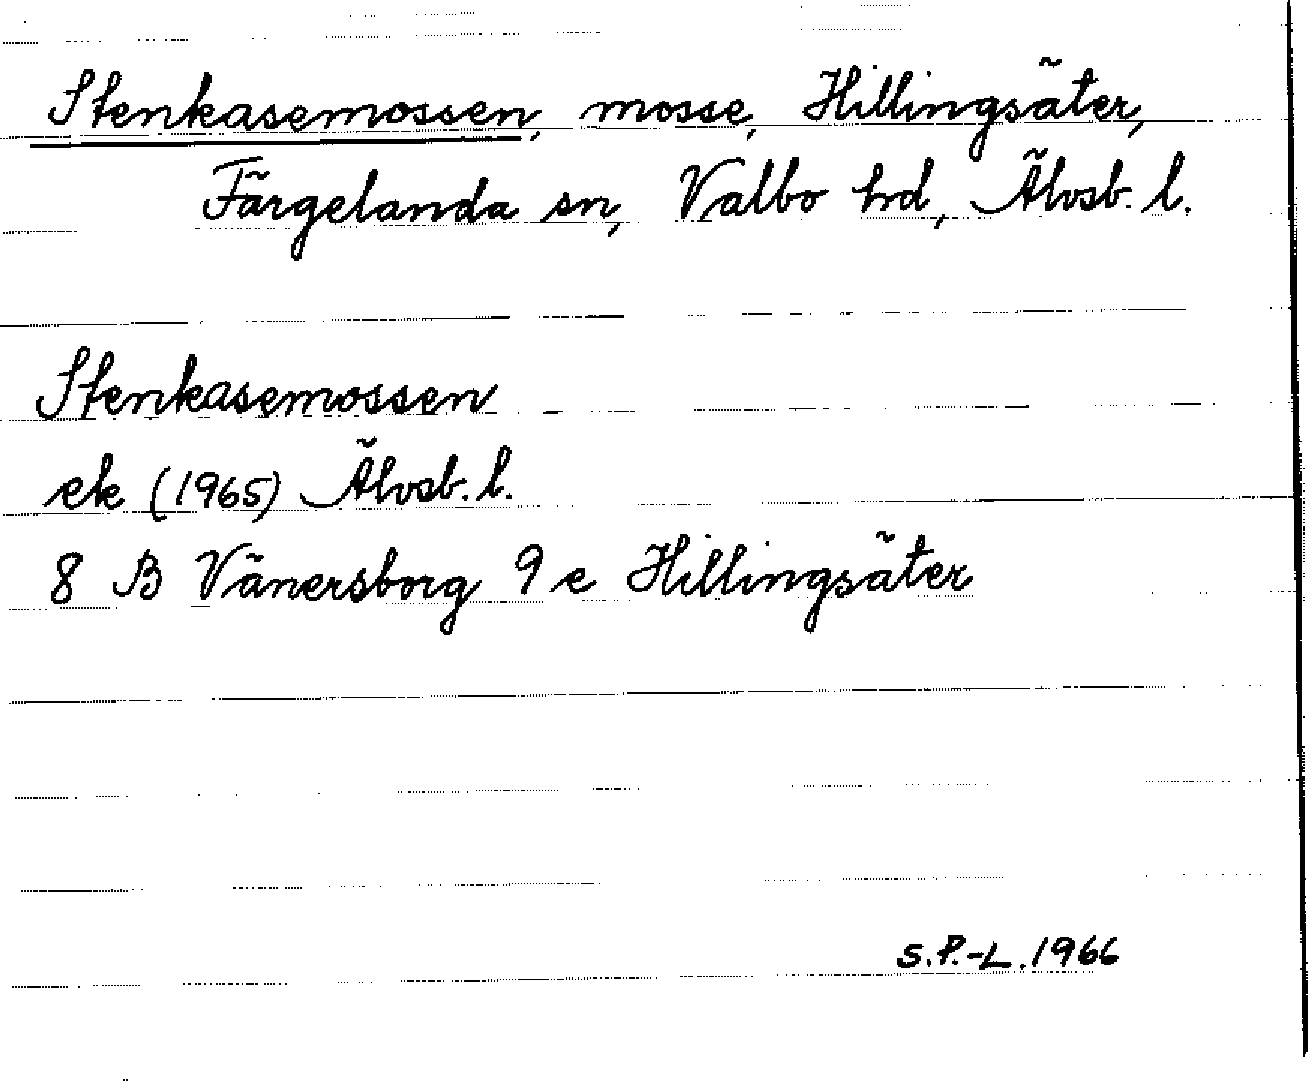 Stenkasemossen, mosse, Hillingsäter,
Färgelanda sn, Valbo hd, Älvsb. l.
Stenkasemossen
ek (1965) Älvsb. l.
8 B Vänersborg 9 e Hillingsäter
S.P.-L. 1966